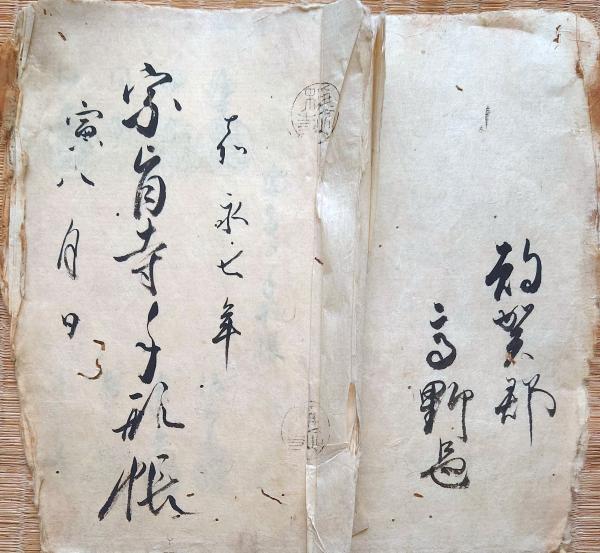 賀郡
高野邑
嘉永七年
宗旨寺手形帳
寅八月日